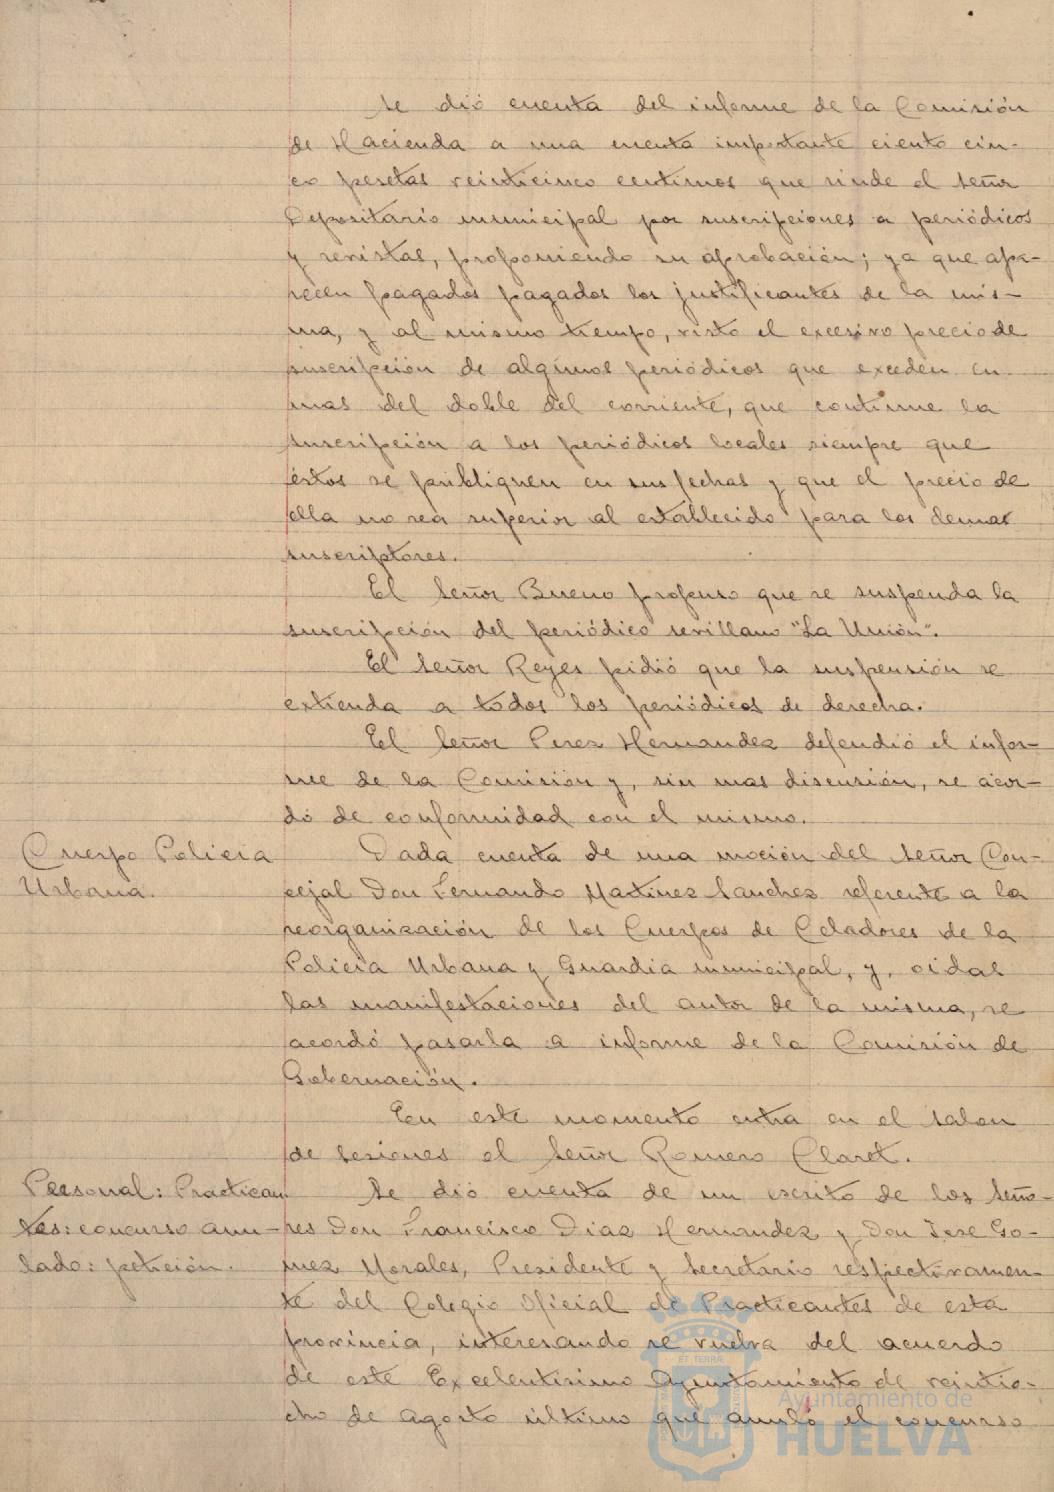 Se dió cuenta del informe de la Comisión
de Hacienda a una cuenta importante ciento cin-
co pesetas veinticinco centimos que rinde el Señor
Depositario municipal por suscripciones a periódicos
y revistas, proponiendo su aprobación; ya que apa-
recen pagados pagados los justificantes de la mis-
ma, y al mismo tiempo, visto el excesivo precio de
suscripción de algunos periódicos que exceden en
mas del doble del corriente, que continue la
suscripción a los periódicos locales siempre que
éstos se publiquen en sus fechas y que el precio de
ella no sea superior al establecido para los demas
suscriptores.
El Señor Bueno propuso que se suspenda la
suscripción del periódico sevillano "La Unión".
El Señor Reyes pidió que la suspensión se
extienda a todos los periódicos de derecha.
El Señor Perez Hernandez defendió el infor-
me de la Comisión y, sin mas discusión, se acor-
dó de conformidad con el mismo.
Cuerpo Policia
Urbana.
Dada cuenta de una moción del Señor Con-
cejal Don Fernando Martinez Sanchez referente a la
reorganización de los Cuerpos de Celadores de la
Policia Urbana y Guardia municipal, y, oidas
las manifestaciones del autor de la misma, se
acordó pasarla a informe de la Comisión de
Gobernación.
En este momento entra en el salon
de sesiones el Señor Romero Claret.
Personal: Practican-
tes: concurso anu-
lado: petición.
Se dió cuenta de un escrito de los Seño-
res Don Francisco Diaz Hernandez y Don Jose Go-
mez Morales, Presidente y Secretario respectivamen-
te del Colegio Oficial de Practicantes de esta
provincia, interesando se vuelva del acuerdo
de este Excelentisimo Ayuntamiento de veintio-
cho de Agosto último que anuló el concurso
ET TERRÆ
Ayuntamiento de
HUELVA